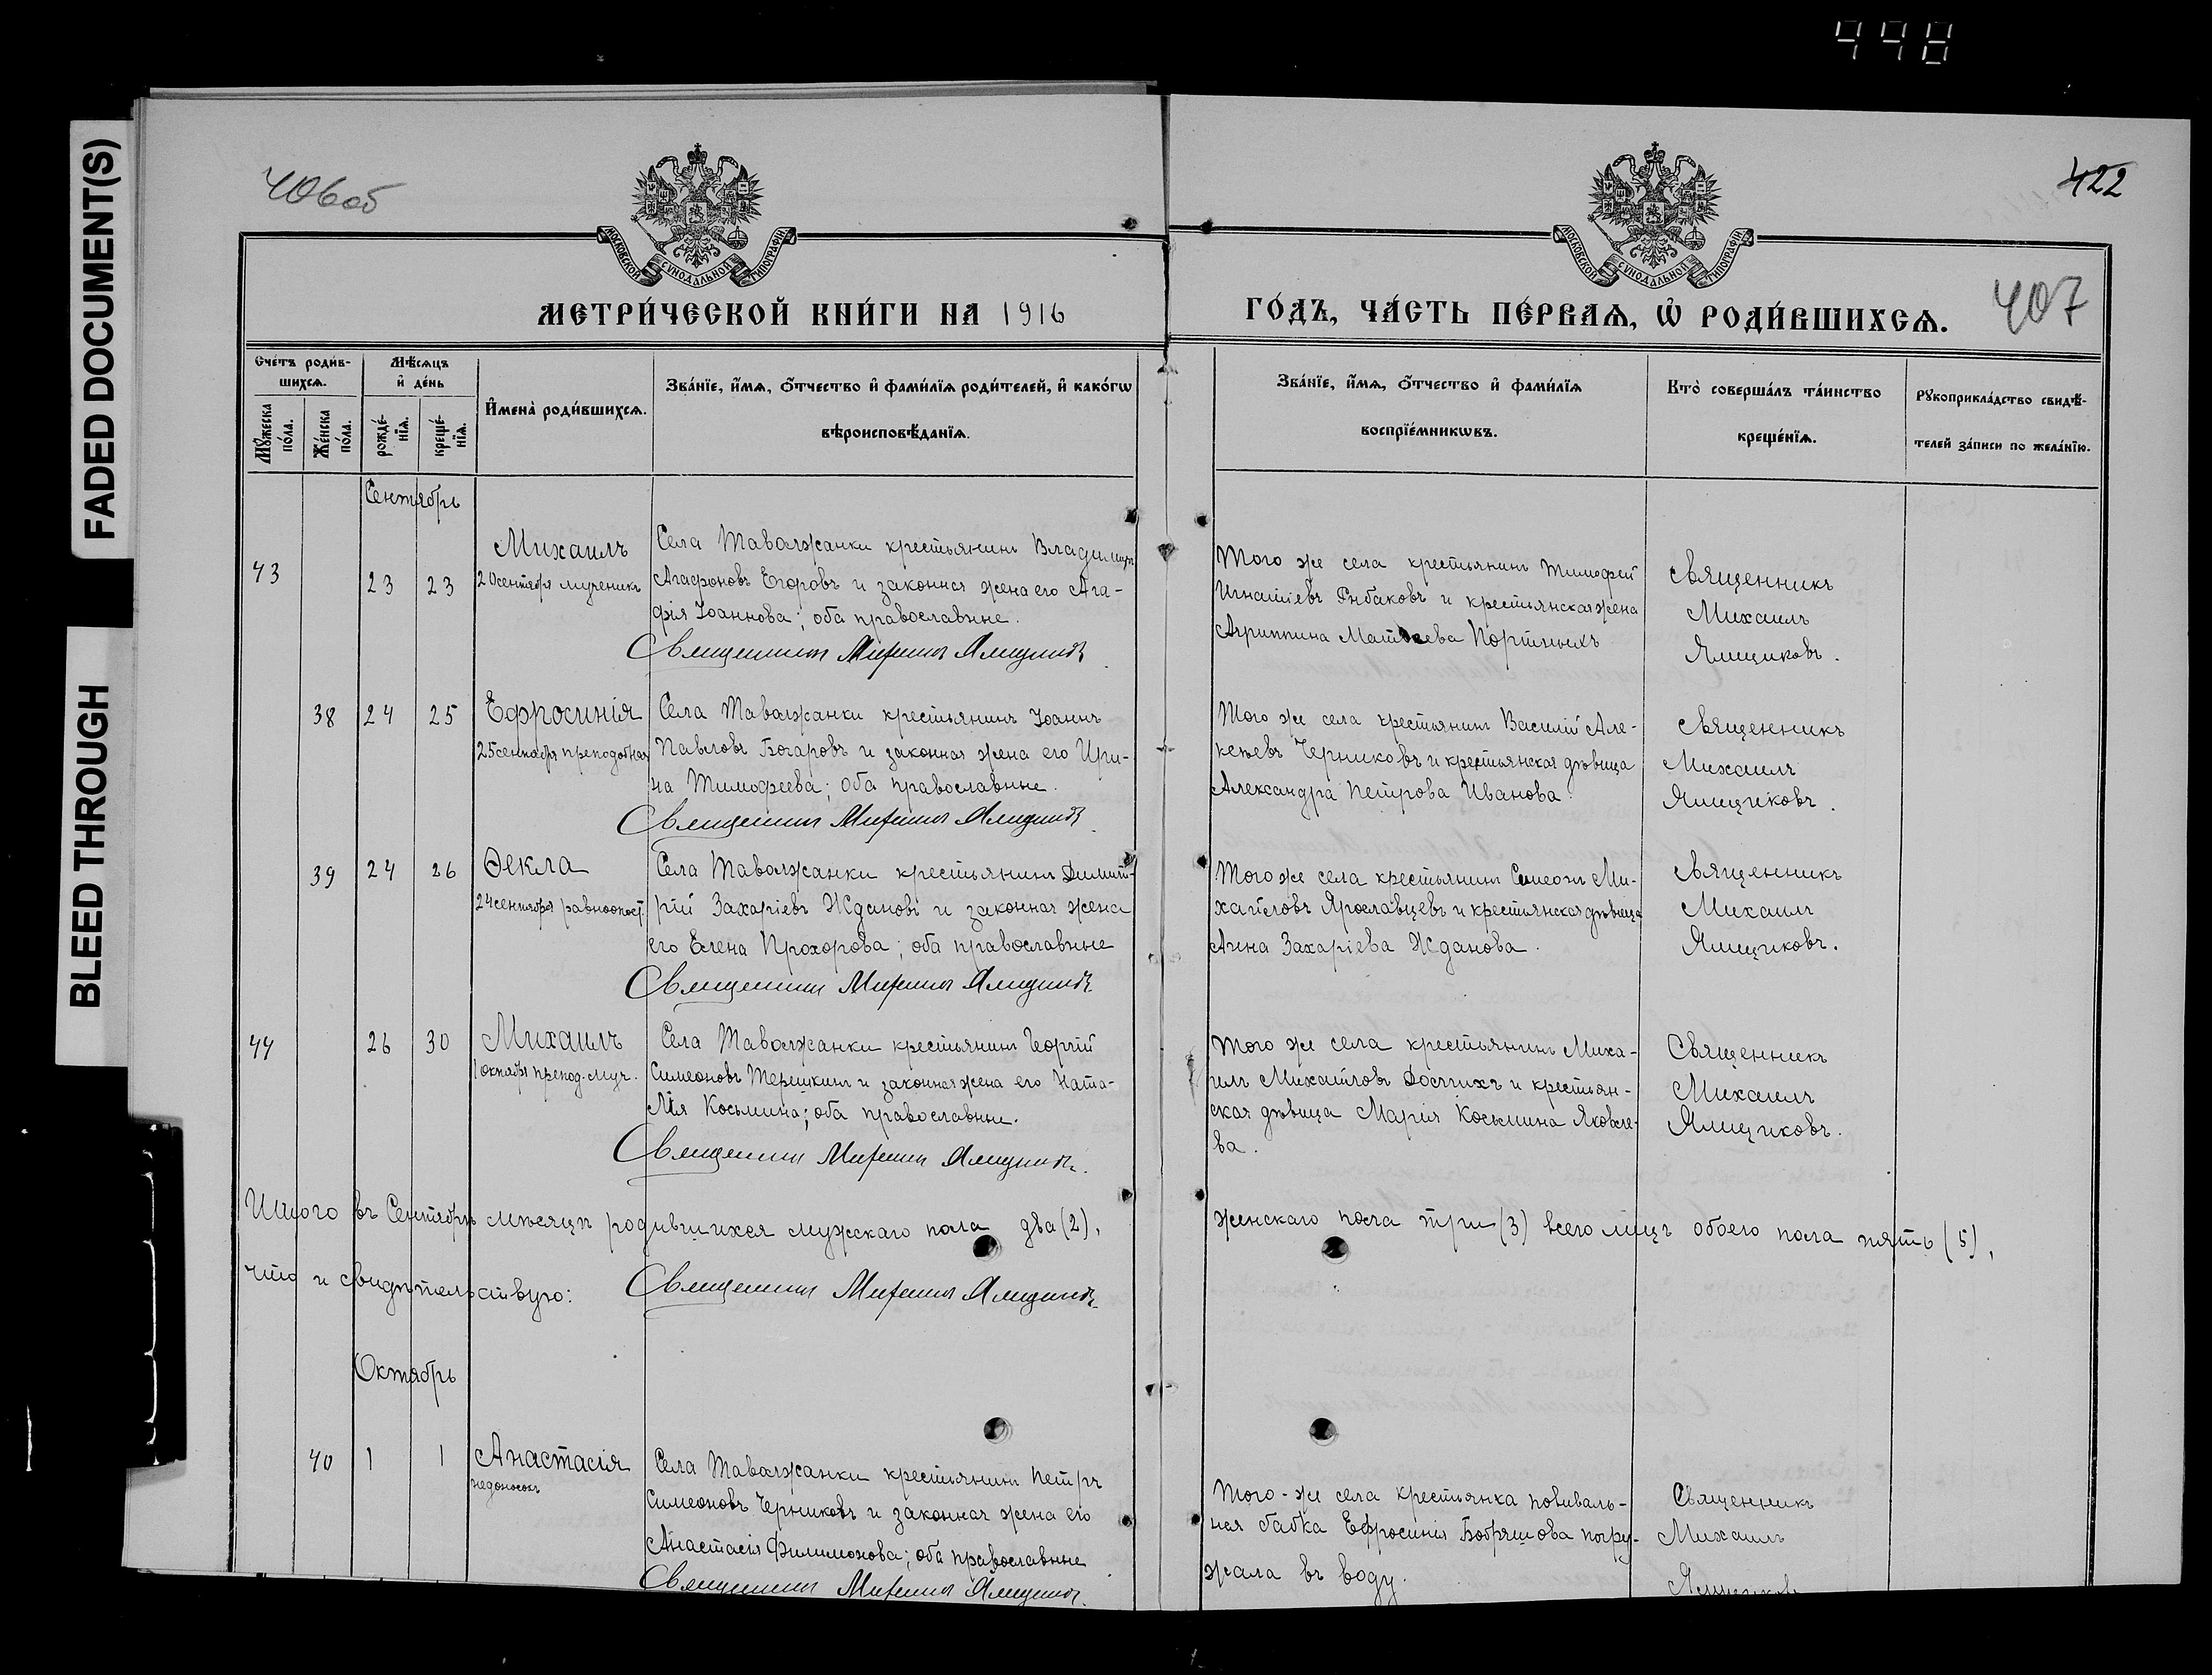 448
FADED DOCUMENT(S)
BLEED THROUGH
406об
422
407
МОСКОВСКОЙ СУНОДАЛЬНОЙ ТИПОГРАФІИ
МОСКОВСКОЙ СУНОДАЛЬНОЙ ТИПОГРАФІИ
МЕТРИ́ЧЕСКОЙ КНИ́ГИ НА 1916
ГО́ДЪ, ЧА́СТЬ ПЕ́РВАѦ, Ѡ҆ РОДИ́ВШИХСѦ.
Сче́тъ роди́в-
шихсѧ.
Мѣ́сѧцъ
и҆ де́нь
Мꙋ́жеска
по́ла.
Же́нска
по́ла.
рожде́-
нїѧ.
креще́-
нїѧ.
И҆мена̀ роди́вшихсѧ.
Зва́нїе, и҆́мѧ, ѻ҆́тчество и҆ фами́лїѧ роди́телей, и҆ како́гѡ
вѣроисповѣ́данїѧ.
Зва́нїе, и҆́мѧ, ѻ҆́тчество и҆ фами́лїѧ
воспрїе́мникѡвъ.
Кто̀ соверша́лъ та́инство
креще́нїѧ.
Рꙋкоприкла́дство свидѣ́-
телей за́писи по жела́нїю.
Сентябрь
43
23 23
Михаилъ
20 сентября мученикъ
Села Таволжанки крестьянинъ Владимиръ
Агафоновъ Егоровъ и законная жена его Ага-
фія Іоаннова; оба православные.
Священникъ Михаилъ Ямщиковъ
Того же села крестьянинъ Тимофей
Игнатіевъ Рыбаковъ и крестьянская жена
Агриппина Матвеева Портныхъ
священникъ
Михаилъ
Ямщиковъ.
38 24 25
Ефросинія
25 сентября преподобная
Села Таволжанки крестьянинъ Іоаннъ
Павловъ Бочаровъ и законная жена его Ири-
на Тимофеева; оба православные.
Священникъ Михаилъ Ямщиковъ
Того же села крестьянинъ Василій Але-
ксѣевъ Черниковъ и крестьянская дѣвица
Александра Петрова Иванова.
священникъ
Михаилъ
Ямщиковъ.
39 24 26
Ѳекла
24 сентября равноапост.
Села Таволжанки крестьянинъ Димит-
рій Захаріевъ Ждановъ и законная жена
его Елена Прохорова; оба православные
Священникъ Михаилъ Ямщиковъ.
Того же села крестьянинъ Симеонъ Ми-
хайловъ Ярославцевъ и крестьянская дѣвица
Анна Захаріева Жданова.
священникъ
Михаилъ
Ямщиковъ.
44 26 30
Михаилъ
1 октября препод. муч.
Села Таволжанки крестьянинъ Георгій
Симеоновъ Терешкинъ и законная жена его Ната-
лія Косьмина; оба православные.
Священникъ Михаилъ Ямщиковъ.
Того же села крестьянинъ Миха-
илъ Михайловъ и крестьян-
ская дѣвица Марія Косьмина Яковле-
ва.
Священникъ
Михаилъ
Ямщиковъ.
Итого въ Сентябрѣ мѣсяцѣ родившихся мужскаго пола два (2),
женскаго пола три (3) всего лицъ обоего пола пять (5),
что и свидѣтельствую: Священникъ Михаилъ Ямщиковъ.
Октябрь
40 1 1
Анастасія
недоносокъ
Села Таволжанки крестьянинъ Петръ
Симеоновъ Черниковъ и законная жена его
Анастасія Филимонова; оба православные
Священникъ Михаилъ Ямщиковъ.
Того-же села крестьянка повиваль-
ная бабка Ефросинія Бобряшова погру-
жала въ воду.
Священникъ
Михаилъ
Ямщиковъ